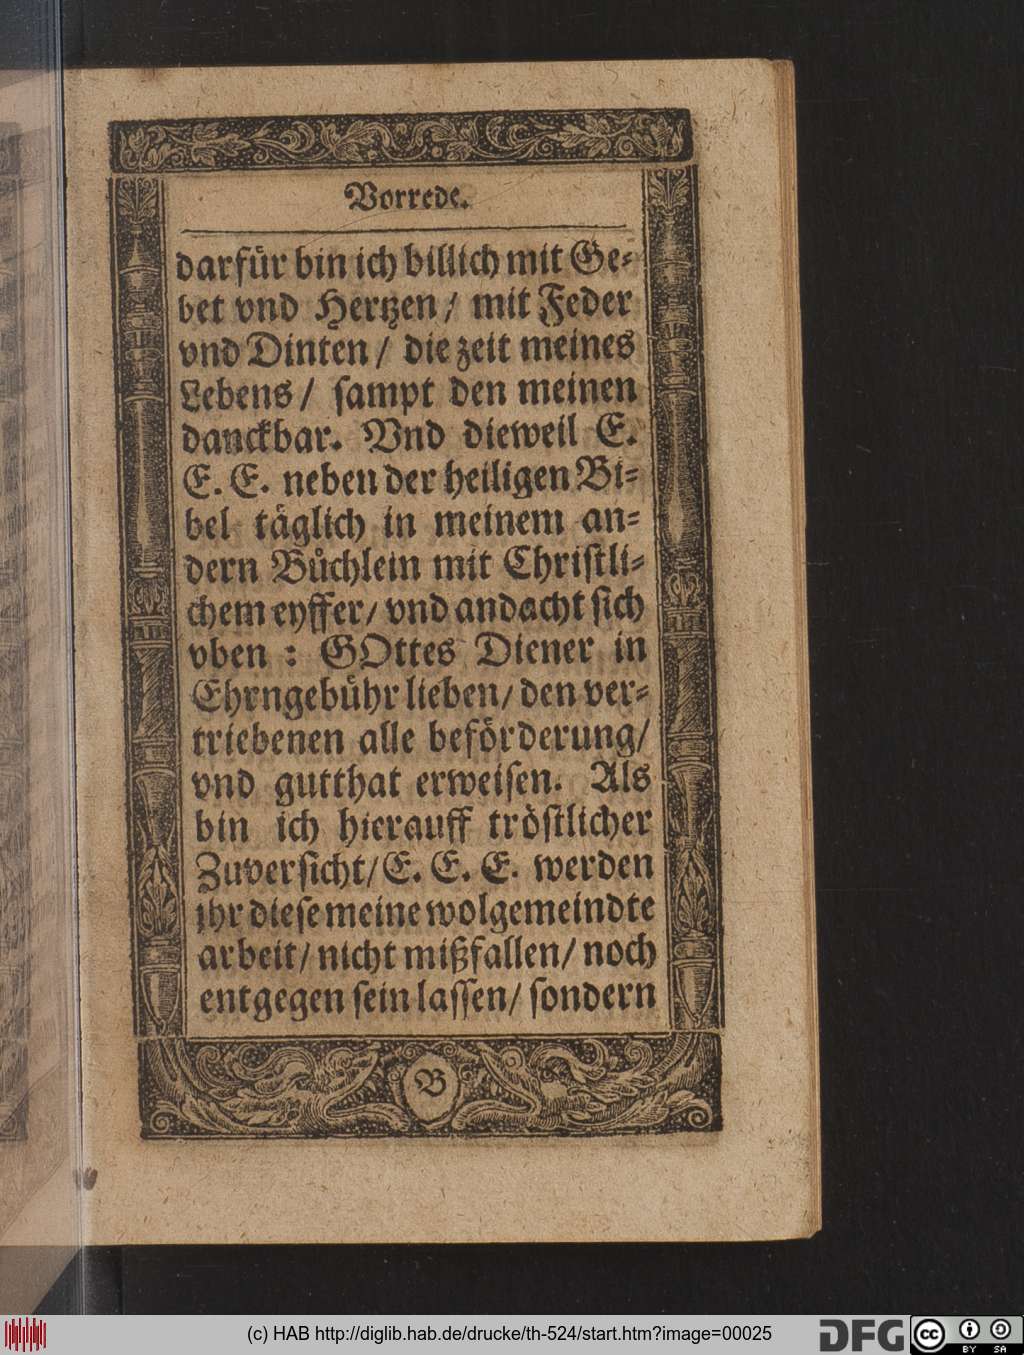 Vorrede.
darfür bin ich billich mit Ge-
bet vnd Hertzen / mit Feder
vnd Dinten / die zeit meines
Lebens / sampt den meinen
danckbar. Vnd dieweil E.
E. E. neben der heiligen Bi-
bel täglich in meinem an-
dern Bůchlein mit Christli-
chem eyffer / vnd andacht sich
vben : GOttes Diener in
Ehrngebühr lieben / den ver-
triebenen alle beförderung /
vnd gutthat erweisen. Als
bin ich hierauff tröstlicher
Zuversicht / E. E. E. werden
jhr diese meine wolgemeindte
arbeit / nicht mißfallen / noch
entgegen sein lassen / sondern
B
(c) HAB http://diglib.hab.de/drucke/th-524/start.htm?image=00025
DFG
cc
BY SA